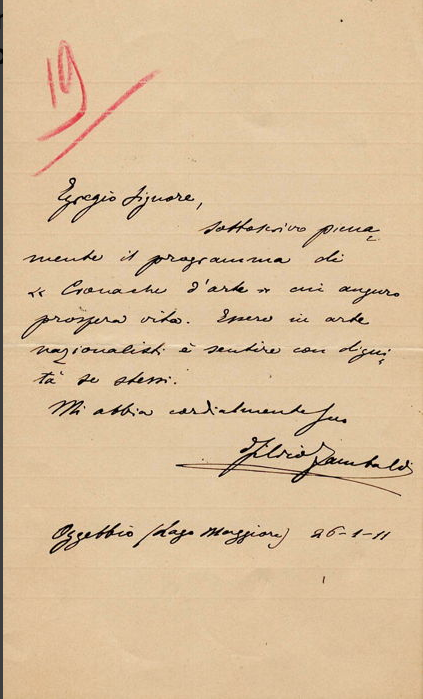 19
Egregio Signore,
sottoscrivo piena
mente il programma di
« Cronache d'arte » cui auguro
prospera vita. Essere in arte
nazionalisti è sentire con digni
tà se stessi.
Mi abbia cordialmente suo
Silvio Zambaldi
Oggebbio (Lago Maggiore) 26-1-11